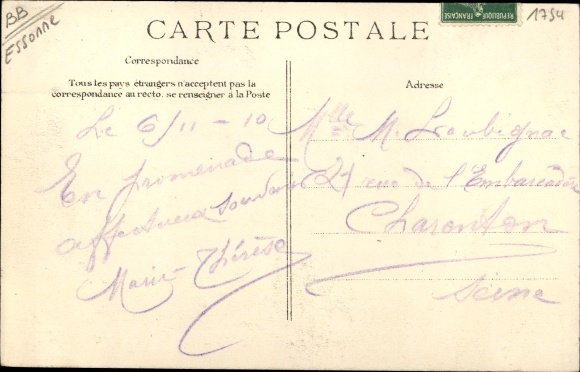 BB
ESSONNE
1794
REPUBLIQUE FRANÇAISE
CARTE POSTALE
Correspondance
Tous les pays étrangers n'acceptent pas la
correspondance au recto. se renseigner à la Poste
Le 6/11 - 10
En promenade
affectueux souvenir
Marie-Thérèse
Adresse
Mlle M. Loubignac
21 rue de l'Embarcadère
Charenton
Seine